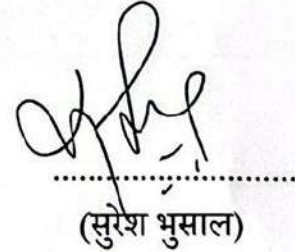 ....................................
(सुरेश भुसाल)